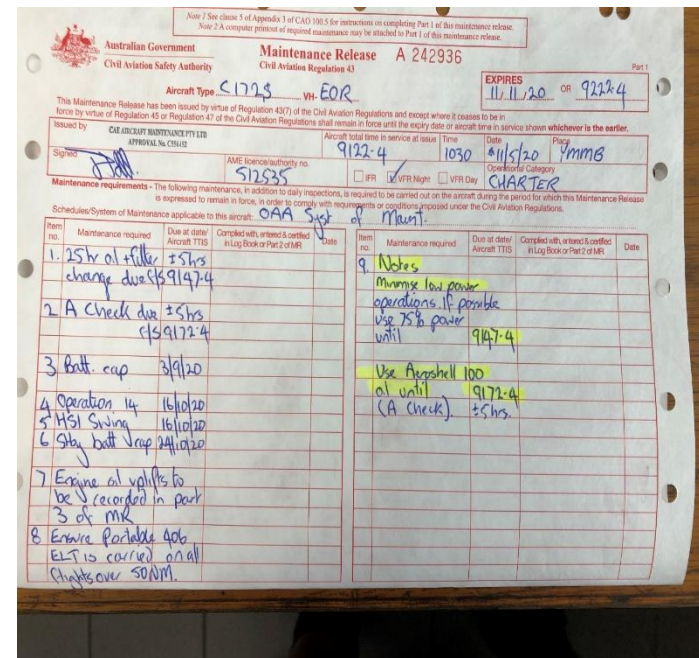 Note 1 See clause 5 of Appendix 3 of CAO 100.5 for instructions on completing Part 1 of this maintenance release.
Note 2 A computer printout of required maintenance may be attached to Part 1 of this maintenance release.
Australian Government
Civil Aviation Safety Authority
Maintenance Release A 242936
Civil Aviation Regulation 43
Part 1
Aircraft Type C172S VH- EOR
EXPIRES
11/11/20 OR 9222.4
This Maintenance Release has been issued by virtue of Regulation 43(7) of the Civil Aviation Regulations and except where it ceases to be in
force by virtue of Regulation 45 or Regulation 47 of the Civil Aviation Regulations shall remain in force until the expiry date or aircraft time in service shown whichever is the earlier.
Issued by
CAE AIRCRAFT MAINTENANCE PTY LTD
APPROVAL No. C556452
Signed
Aircraft total time in service at issue
9122.4
Time
1030
Date
11/5/20
Place
YMMB
AME licence/authority no.
512535
IFR
VFR Night
VFR Day
Operational Category
CHARTER
Maintenance requirements - The following maintenance, in addition to daily inspections, is required to be carried out on the aircraft during the period for which this Maintenance Release
is expressed to remain in force, in order to comply with requirements or conditions imposed under the Civil Aviation Regulations.
Schedules/System of Maintenance applicable to this aircraft: OAA Syst of Maint.
Item no.
Maintenance required
Due at date/ Aircraft TTIS
Complied with, entered & certified in Log Book or Part 2 of MR
Date
1. 25hr oil + filter ±5hrs
change due @ 9147.4
2 A Check due ±5hrs
9172.4
3 Batt. cap 3/9/20
4 Operation 14 16/10/20
5 HSI Swing 16/10/20
6 Stby batt cap 24/10/20
7 Engine oil uplifts to
be recorded in part
3 of MR
8 Ensure Portable 406
ELT is carried on all
flights over 50NM.
Item no.
Maintenance required
Due at date/ Aircraft TTIS
Complied with, entered & certified in Log Book or Part 2 of MR
Date
9. Notes
Minimise low power
operations. If possible
use 75% power
until 9147.4
Use Aeroshell 100
oil until 9172.4
(A Check). ±5hrs.